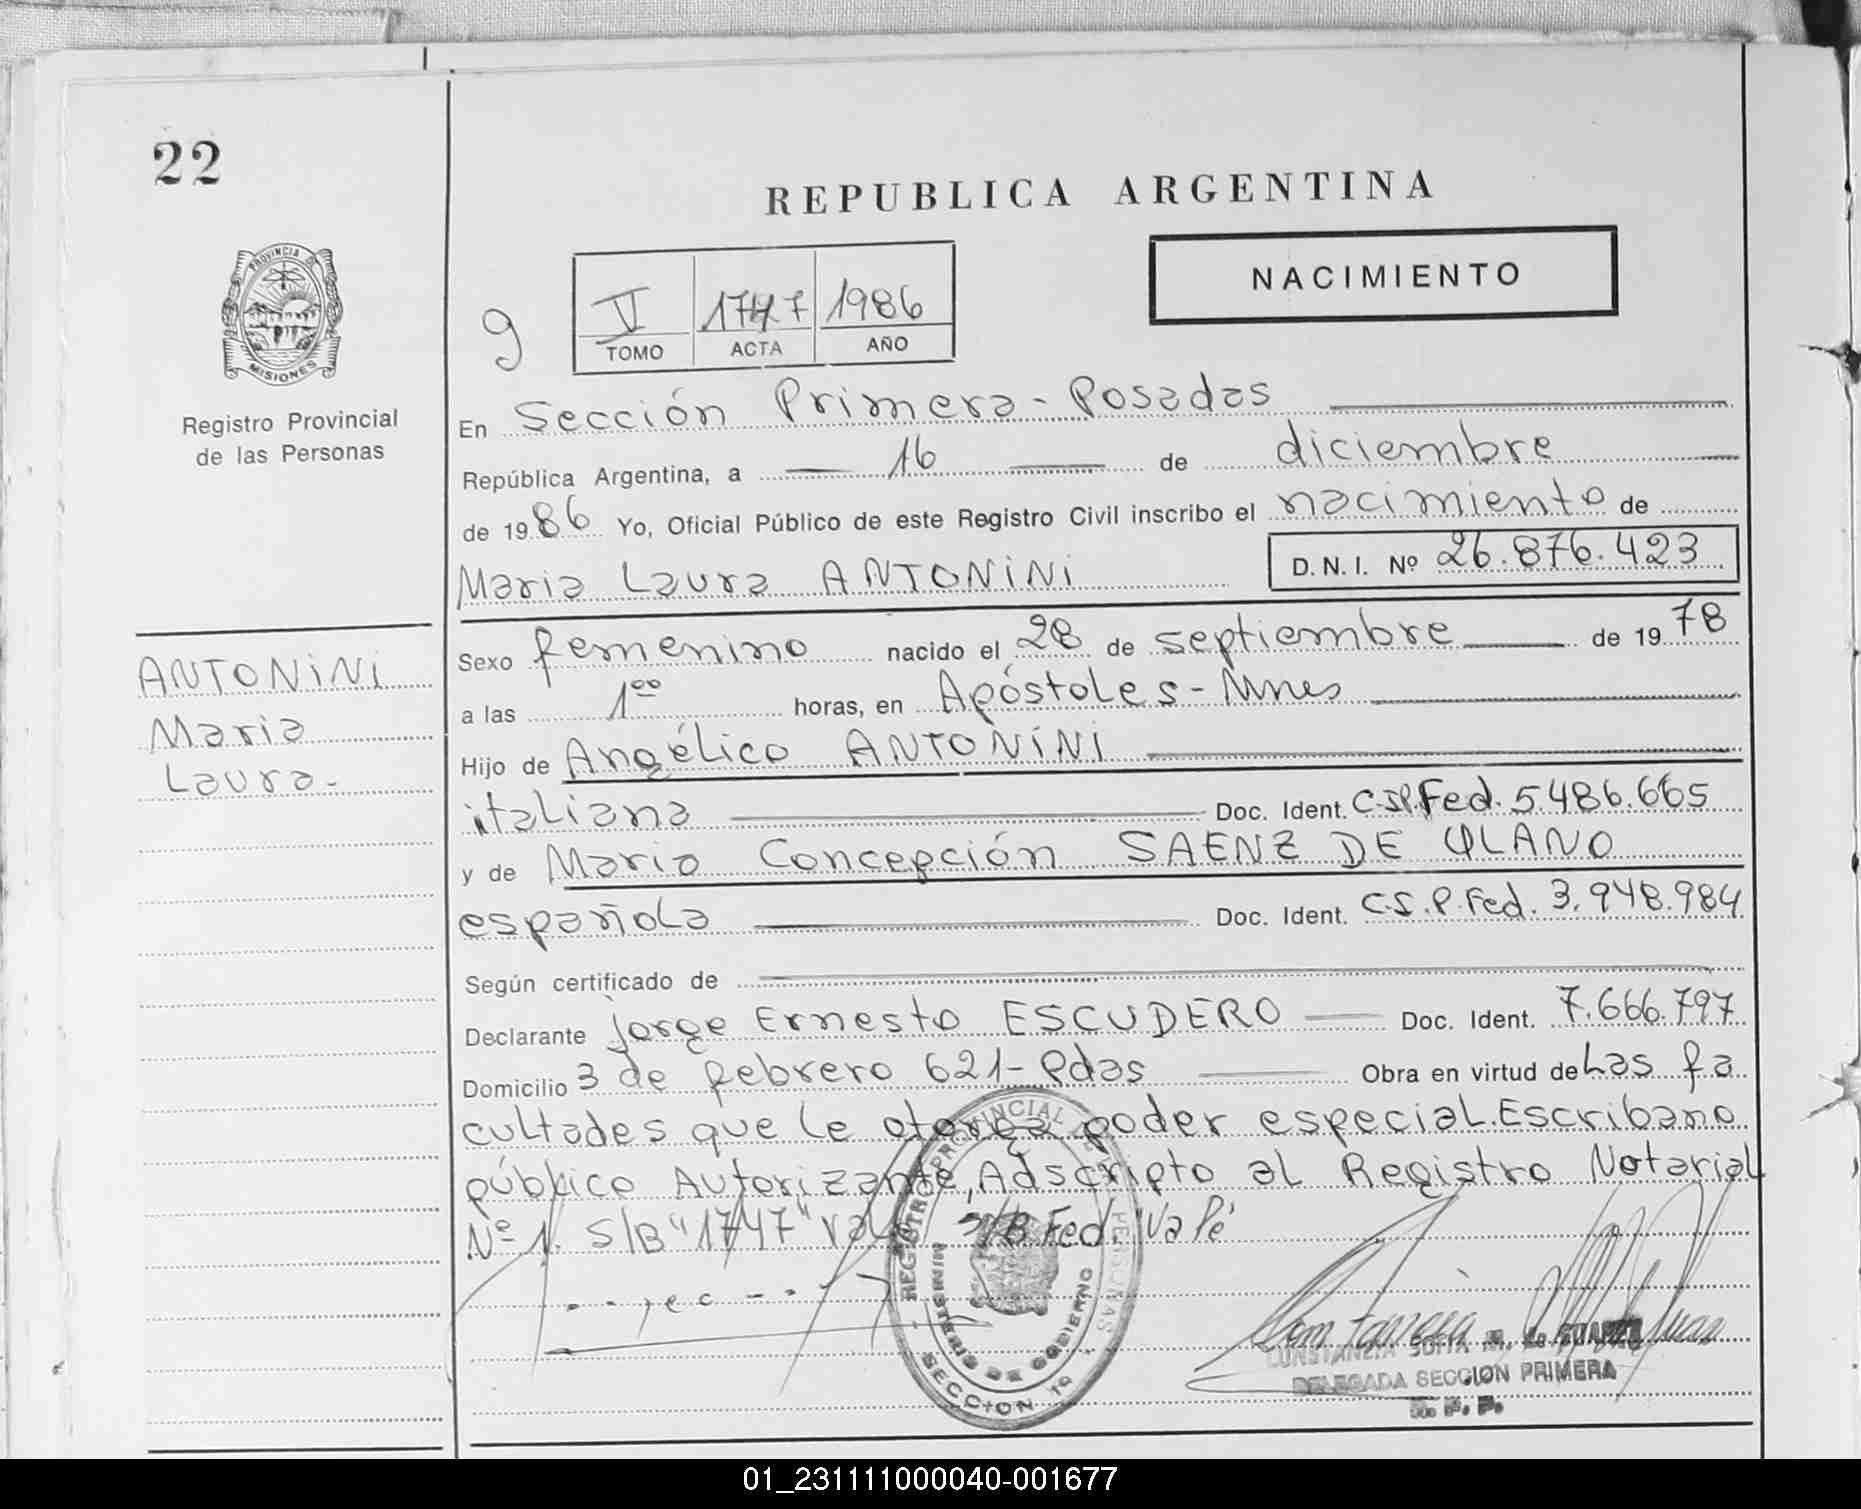 22
REPUBLICA ARGENTINA
NACIMIENTO
PROVINCIA DE
MISIONES
Registro Provincial
de las Personas
9
V 1747 1986
TOMO ACTA AÑO
En Sección Primera - Posadas
República Argentina, a 16 de diciembre
de 1986 Yo, Oficial Público de este Registro Civil inscribo el nacimiento de
Maria Laura ANTONINI D.N.I. Nº 26.876.423
ANTONINI
Maria
Laura.-
Sexo femenino nacido el 28 de septiembre de 1978
a las 1⁰⁰ horas, en Apóstoles - Mnes
Hijo de Angélico ANTONINI
italiana Doc. Ident. C.I.P.Fed. 5.486.665
y de Maria Concepción SAENZ DE OLANO
española Doc. Ident. C.I.P.Fed. 3.948.984
Según certificado de
Declarante Jorge Ernesto ESCUDERO Doc. Ident. 7.666.797
Domicilio 3 de febrero 621 - Pdas Obra en virtud de Las fa
cultades que le otorga poder especial. Escribano
público Autorizante, Adscripto al Registro Notarial
Nº 1. S/B "1747" Vale S/B Fed. "Vale"
REGISTRO PROVINCIAL DE LAS PERSONAS
MINISTERIO DE GOBIERNO
SECCION 1º
CONSTANZIA SOFIA M. de SUAREZ
DELEGADA SECCION PRIMERA
R. P. P.
01_231111000040-001677